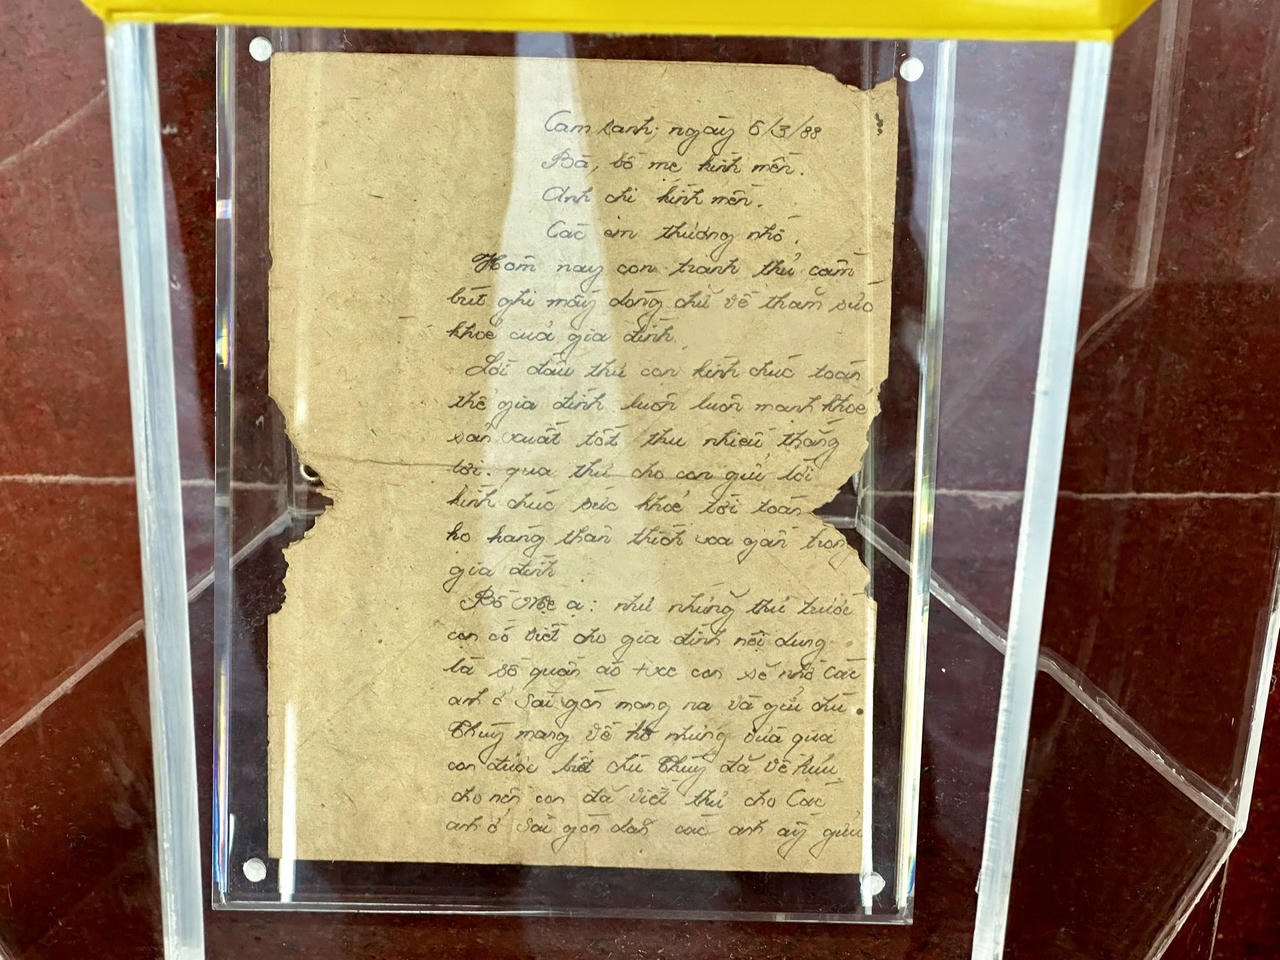 Cam Ranh; ngày 6/3/88
Bà, bố mẹ kính mến.
Anh chị kính mến.
Các em thương nhớ.
Hôm nay con tranh thủ cầm
bút ghi mấy dòng chữ về thăm sức
khoẻ của gia đình.
Lời đầu thư con kính chúc toàn
thể gia đình luôn luôn mạnh khoẻ
sản xuất tốt thu nhiều thắng
lợi. qua thư cho con gửi lời
kính chúc sức khoẻ tới toàn
họ hàng thân thích xa gần trong
gia đình
Bố Mẹ ạ: như những thư trước
con có viết cho gia đình nội dung
là số quần áo + xc con sẽ nhờ các
anh ở Sài gòn mang ra và gửi chú
Thuỳ mang về hộ nhưng vừa qua
con được biết chú Thuỳ đã về hưu
cho nên con đã viết thư cho Các
anh ở Sài gòn dặn các anh ấy gửi